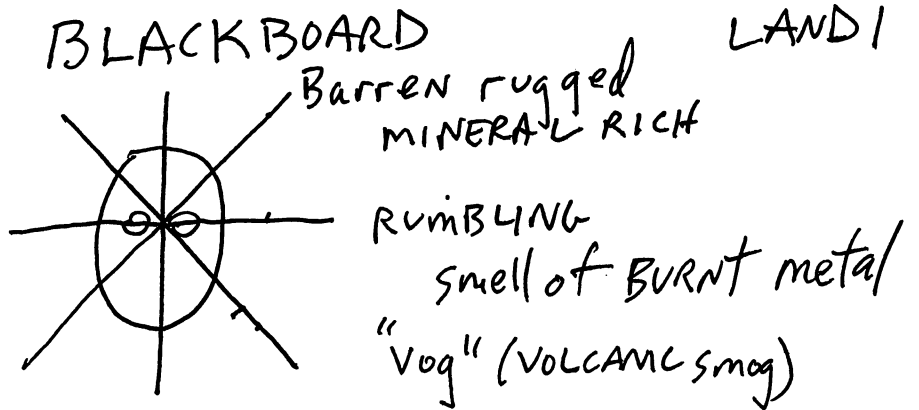 BLACKBOARD LAND 1
Barren rugged
MINERAL RICH
RUMBLING
smell of BURNT metal
"Vog" (VOLCANIC smog)